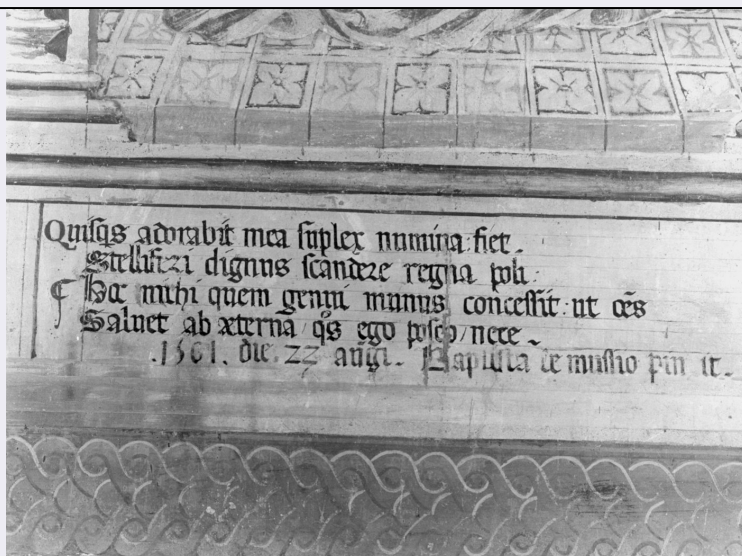 Quisqs adorabit mea suplex numina: fiet.
Stelliferi dignus scandere regna poli:
Hoc mihi quem genui munus concessit: ut oēs
Saluet ab æterna qs ego posco / nece.
.1561. die. 22 augi. Baptista de mussio pin it.